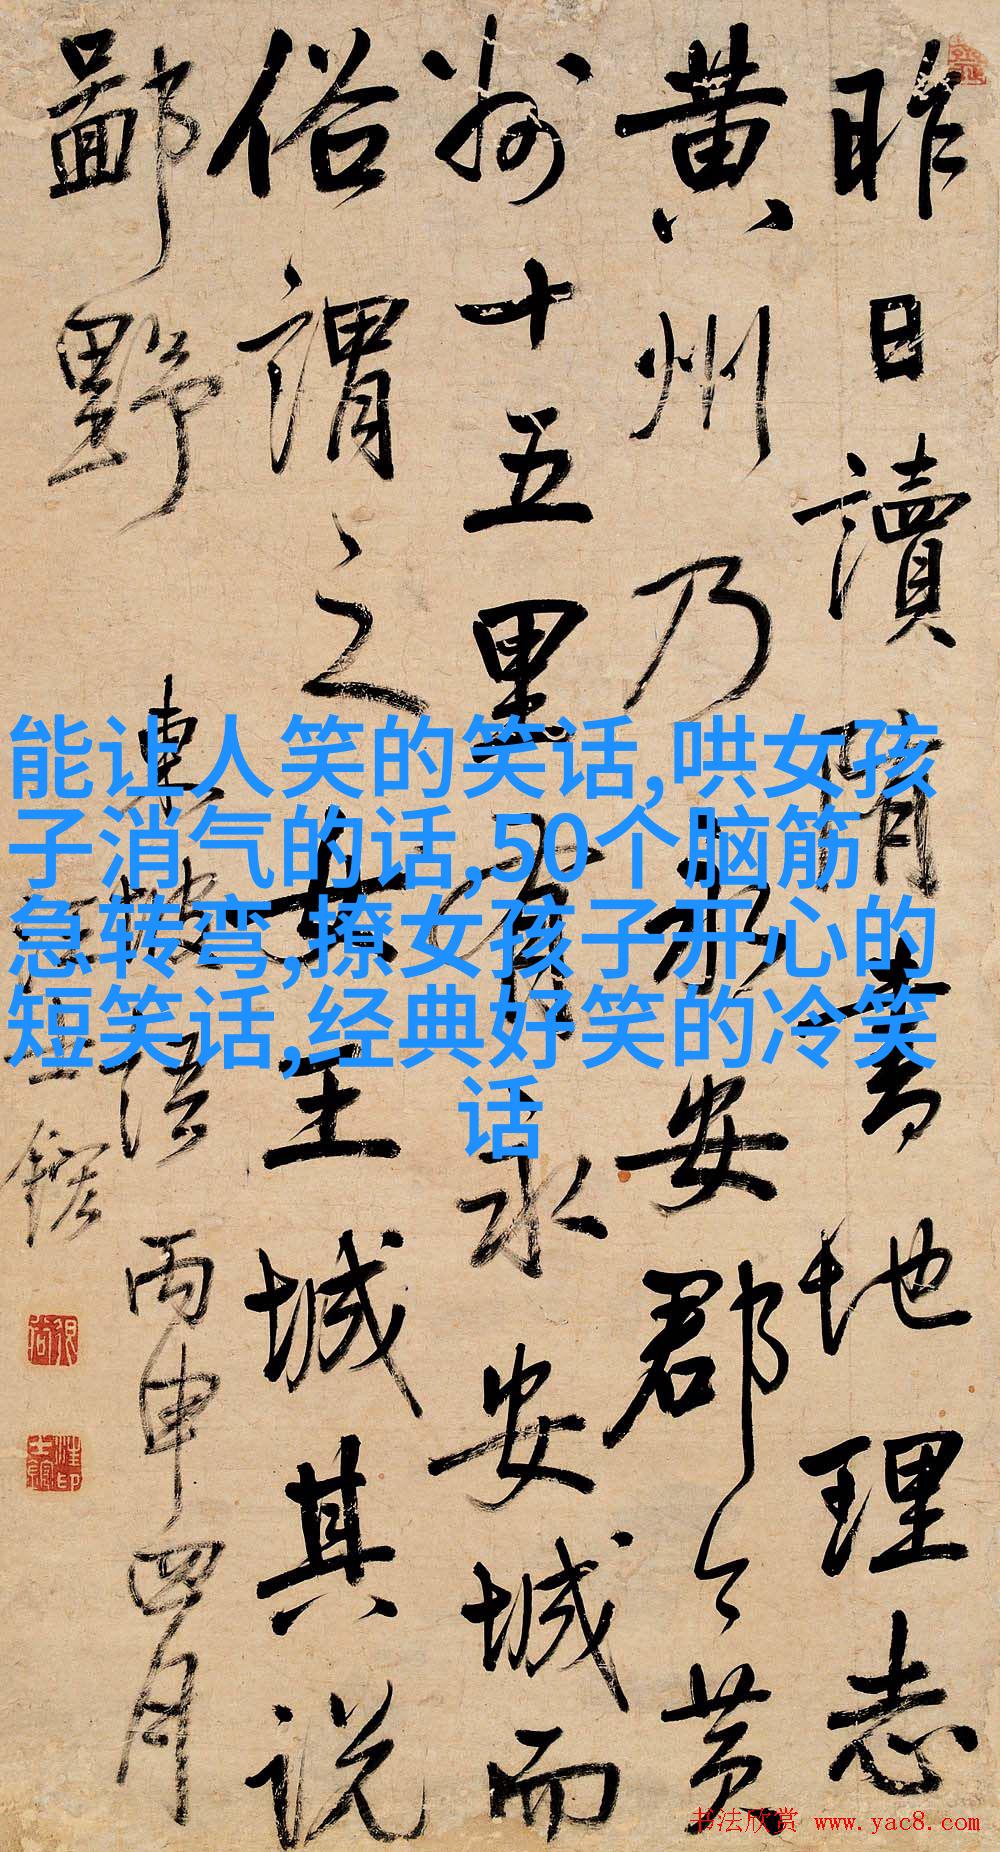 昨日讀隋書地理志
黄州乃永安郡今黄
州十五里有永安城而
俗謂之女王城其説
鄙野
東坡語 丙申四月
汪士鋐
能让人笑的笑话,哄女孩
子消气的话,50个脑筋
急转弯,撩女孩子开心的
短笑话,经典好笑的冷笑
话
书法欣赏 www.yac8.com